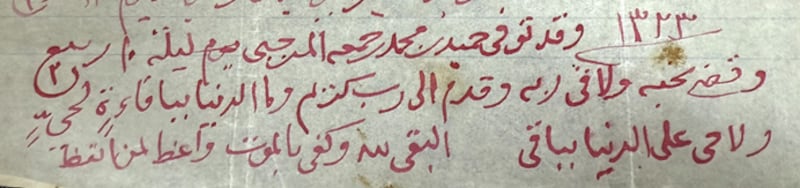 ١٣٢٣ وقد توفى حميد بن محمد بن جمعه المرجبي يوم ليلة ١٠ ربيع ٢
وقضى نحبه ولاقى ربه وقدم الى رب كريم وما الدنيا بباقاءة لحيٍّ
ولا حى على الدنيا بباقى البقى لله وكفى بالموت واعظا لمن اتعظ